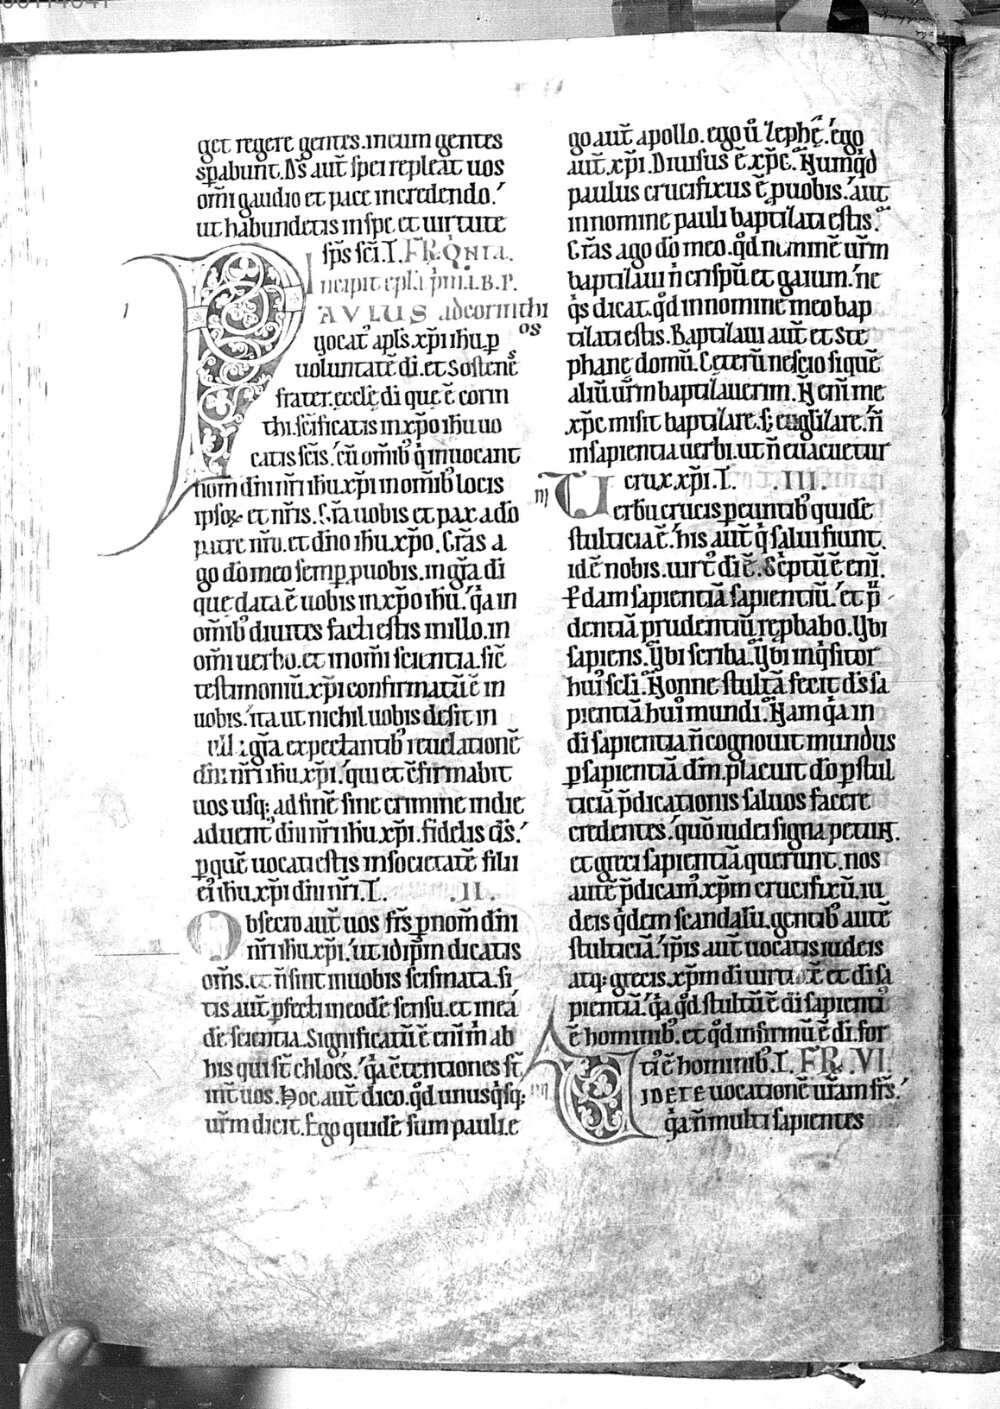 get regere gentes. in eum gentes
sꝑabunt. D̅s aut̅ spei repleat uos
om̅i gaudio et pace in credendo.
ut habundetis in spe et uirtute
sp̅s sc̅i. L. FR. QNTA.
Incipit epl̅a p̅ma. B. P.
PAVLVS ad corinthi
os
uocat᷒ apl̅s xp̅i ih̅u. p
uoluntate̅ di. et Sostene̅s
frater. eccle̅ di que e̅ corin
thi. sc̅ificatis in xp̅o ih̅u uo
catis sc̅is. cu̅ om̅ib᷒ q̅ inuocant
nom̅ dn̅i nr̅i ih̅u xp̅i in om̅ib᷒ locis
ipsoꝝ et nr̅is. Gr̅a uobis et pax a do̅
patre nr̅o. et dn̅o ih̅u xp̅o. Gr̅as a
go do̅ meo semꝑ ꝓ uobis. in gr̅a di
que data e̅ uobis in xp̅o ih̅u. q̅a in
om̅ib᷒ diuites facti estis in illo. in
om̅i uerbo. et in om̅i scientia. sic̅
testimoniu̅ xp̅i confirmatu̅ e̅ in
uobis. ita ut nichil uobis desit in
ulla gr̅a expectantib᷒ reuelatione̅
dn̅i nr̅i ih̅u xp̅i. qui et c̅firmabit
uos usq; ad fine̅ sine crimine in die
aduent᷒ dn̅i nr̅i ih̅u xp̅i. fidelis d̅s.
ꝑ que̅ uocati estis in societate̅ filii
ei᷒ ih̅u xp̅i dn̅i nr̅i. L. .II.
Obsecro aut̅ uos fr̅s ꝑ nom̅ dn̅i
nr̅i ih̅u xp̅i. ut idip̅m dicatis
om̅s. et n̅ sint in uobis scismata. si
tis aut̅ ꝑfecti in eode̅ sensu. et in ea
de̅ scientia. Significatu̅ e̅ eni̅ m̅ ab
his qui st̅ chloes. q̅a c̅tentiones st̅
int̅ uos. Hoc aut̅ dico. qd̅ unusq̅sq;
ur̅m dicit. Ego quide̅ sum pauli. e
go aut̅ apollo. ego u̅ zephe̅. ego
aut̅ xp̅i. Diuisus e̅ xp̅c. Numq̅d
paulus crucifixus e̅ ꝓ uobis. aut
in nomine pauli baptizati estis.
Gr̅as ago do̅ meo. qd̅ nemine̅ ur̅m
baptizaui n̅ crispu̅ et gaium. ne
q̅s dicat. qd̅ in nomine meo bap
tizati estis. Baptizaui aut̅ et Ste
phane domu̅. Ceteru̅ nescio si que̅
aliu̅ ur̅m baptizauerim. N̅ eni̅ me
xp̅c misit baptizare. s; eug̅lizare. n̅
in sapientia uerbi. ut n̅ euacuetur
crux xp̅i. L. .III.
III Uerbu̅ crucis ꝑeuntib᷒ quide̅
stulticia e̅. his aut̅ q̅ salui fiunt.
id e̅ nobis. uirt᷒ di e̅. Sc̅ptu̅ e̅ eni̅.
Ꝑdam sapientia̅ sapientiu̅. et p̅
dentia̅ prudentiu̅ reꝓbabo. Vbi
sapiens. Vbi scriba. Vbi inq̅sitor
hui᷒ sc̅li. Nonne stulta̅ fecit d̅s sa
pientia̅ hui᷒ mundi. Nam q̅a in
di sapientia n̅ cognouit mundus
ꝑ sapientia̅ dm̅. placuit do̅ ꝑ stul
ticia̅ p̅dicationis saluos facere
credentes. quo̅ iudei signa petunt.
et greci sapientia̅ querunt. nos
aute̅ p̅dicam᷒ xp̅m crucifixu̅. iu
deis q̅dem scandalu̅. gentib᷒ aute̅
stulticia̅. ip̅is aut̅ uocatis iudeis
atq; grecis. xp̅m di uirtute̅ et di sa
pientia̅. q̅a qd̅ stultu̅ e̅ di sapienti᷒
e̅ hominib᷒. et qd̅ infirmu̅ e̅ di. for
ti᷒ e̅ hominib᷒. L. FR. VI.
IIII VIDETE uocatione̅ ur̅am fr̅s.
q̅a n̅ multi sapientes